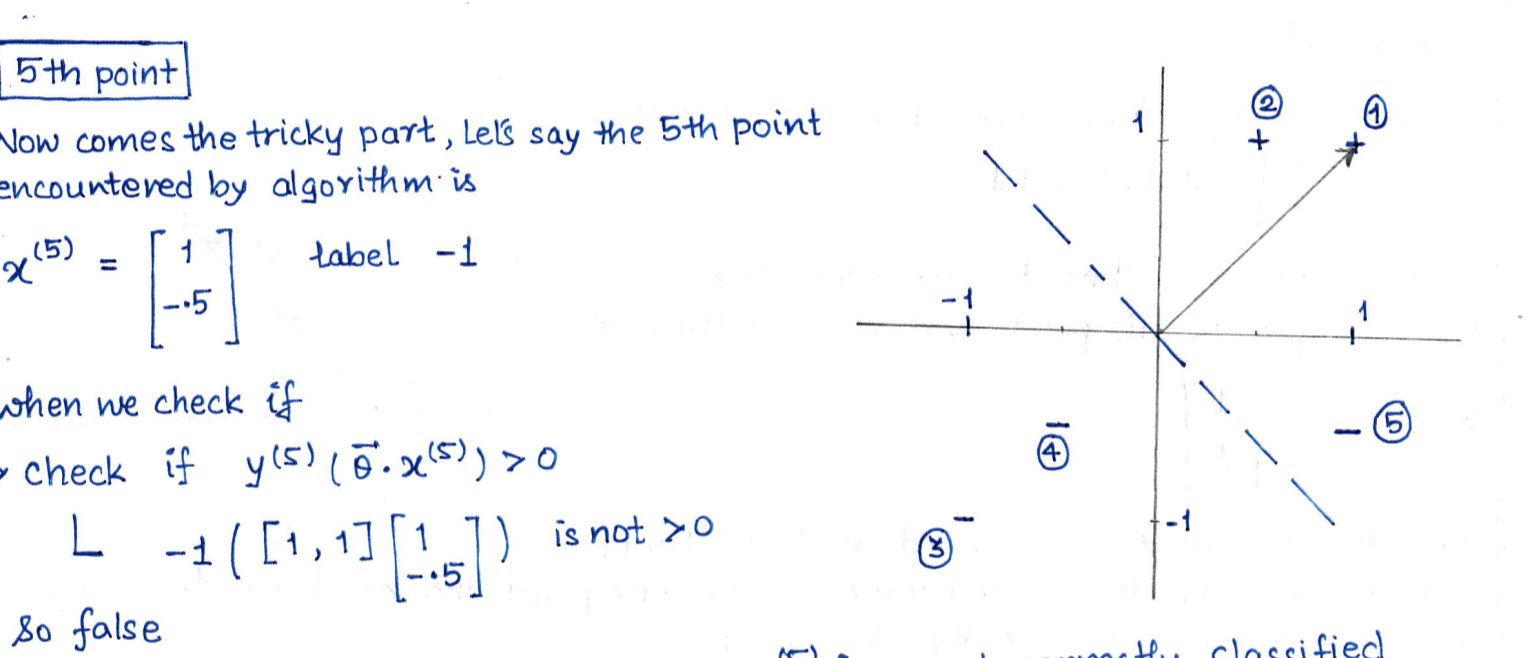 5th point
Now comes the tricky part, Let's say the 5th point
encountered by algorithm is
x^(5) = [1 -.5] label -1
when we check if
check if y^(5) (θ⃗ . x^(5)) > 0
-1 ([1, 1] [1 -.5]) is not > 0
so false
classified
1
②
+
①
+
-1
1
-
⑤
-
④
-
③
-1